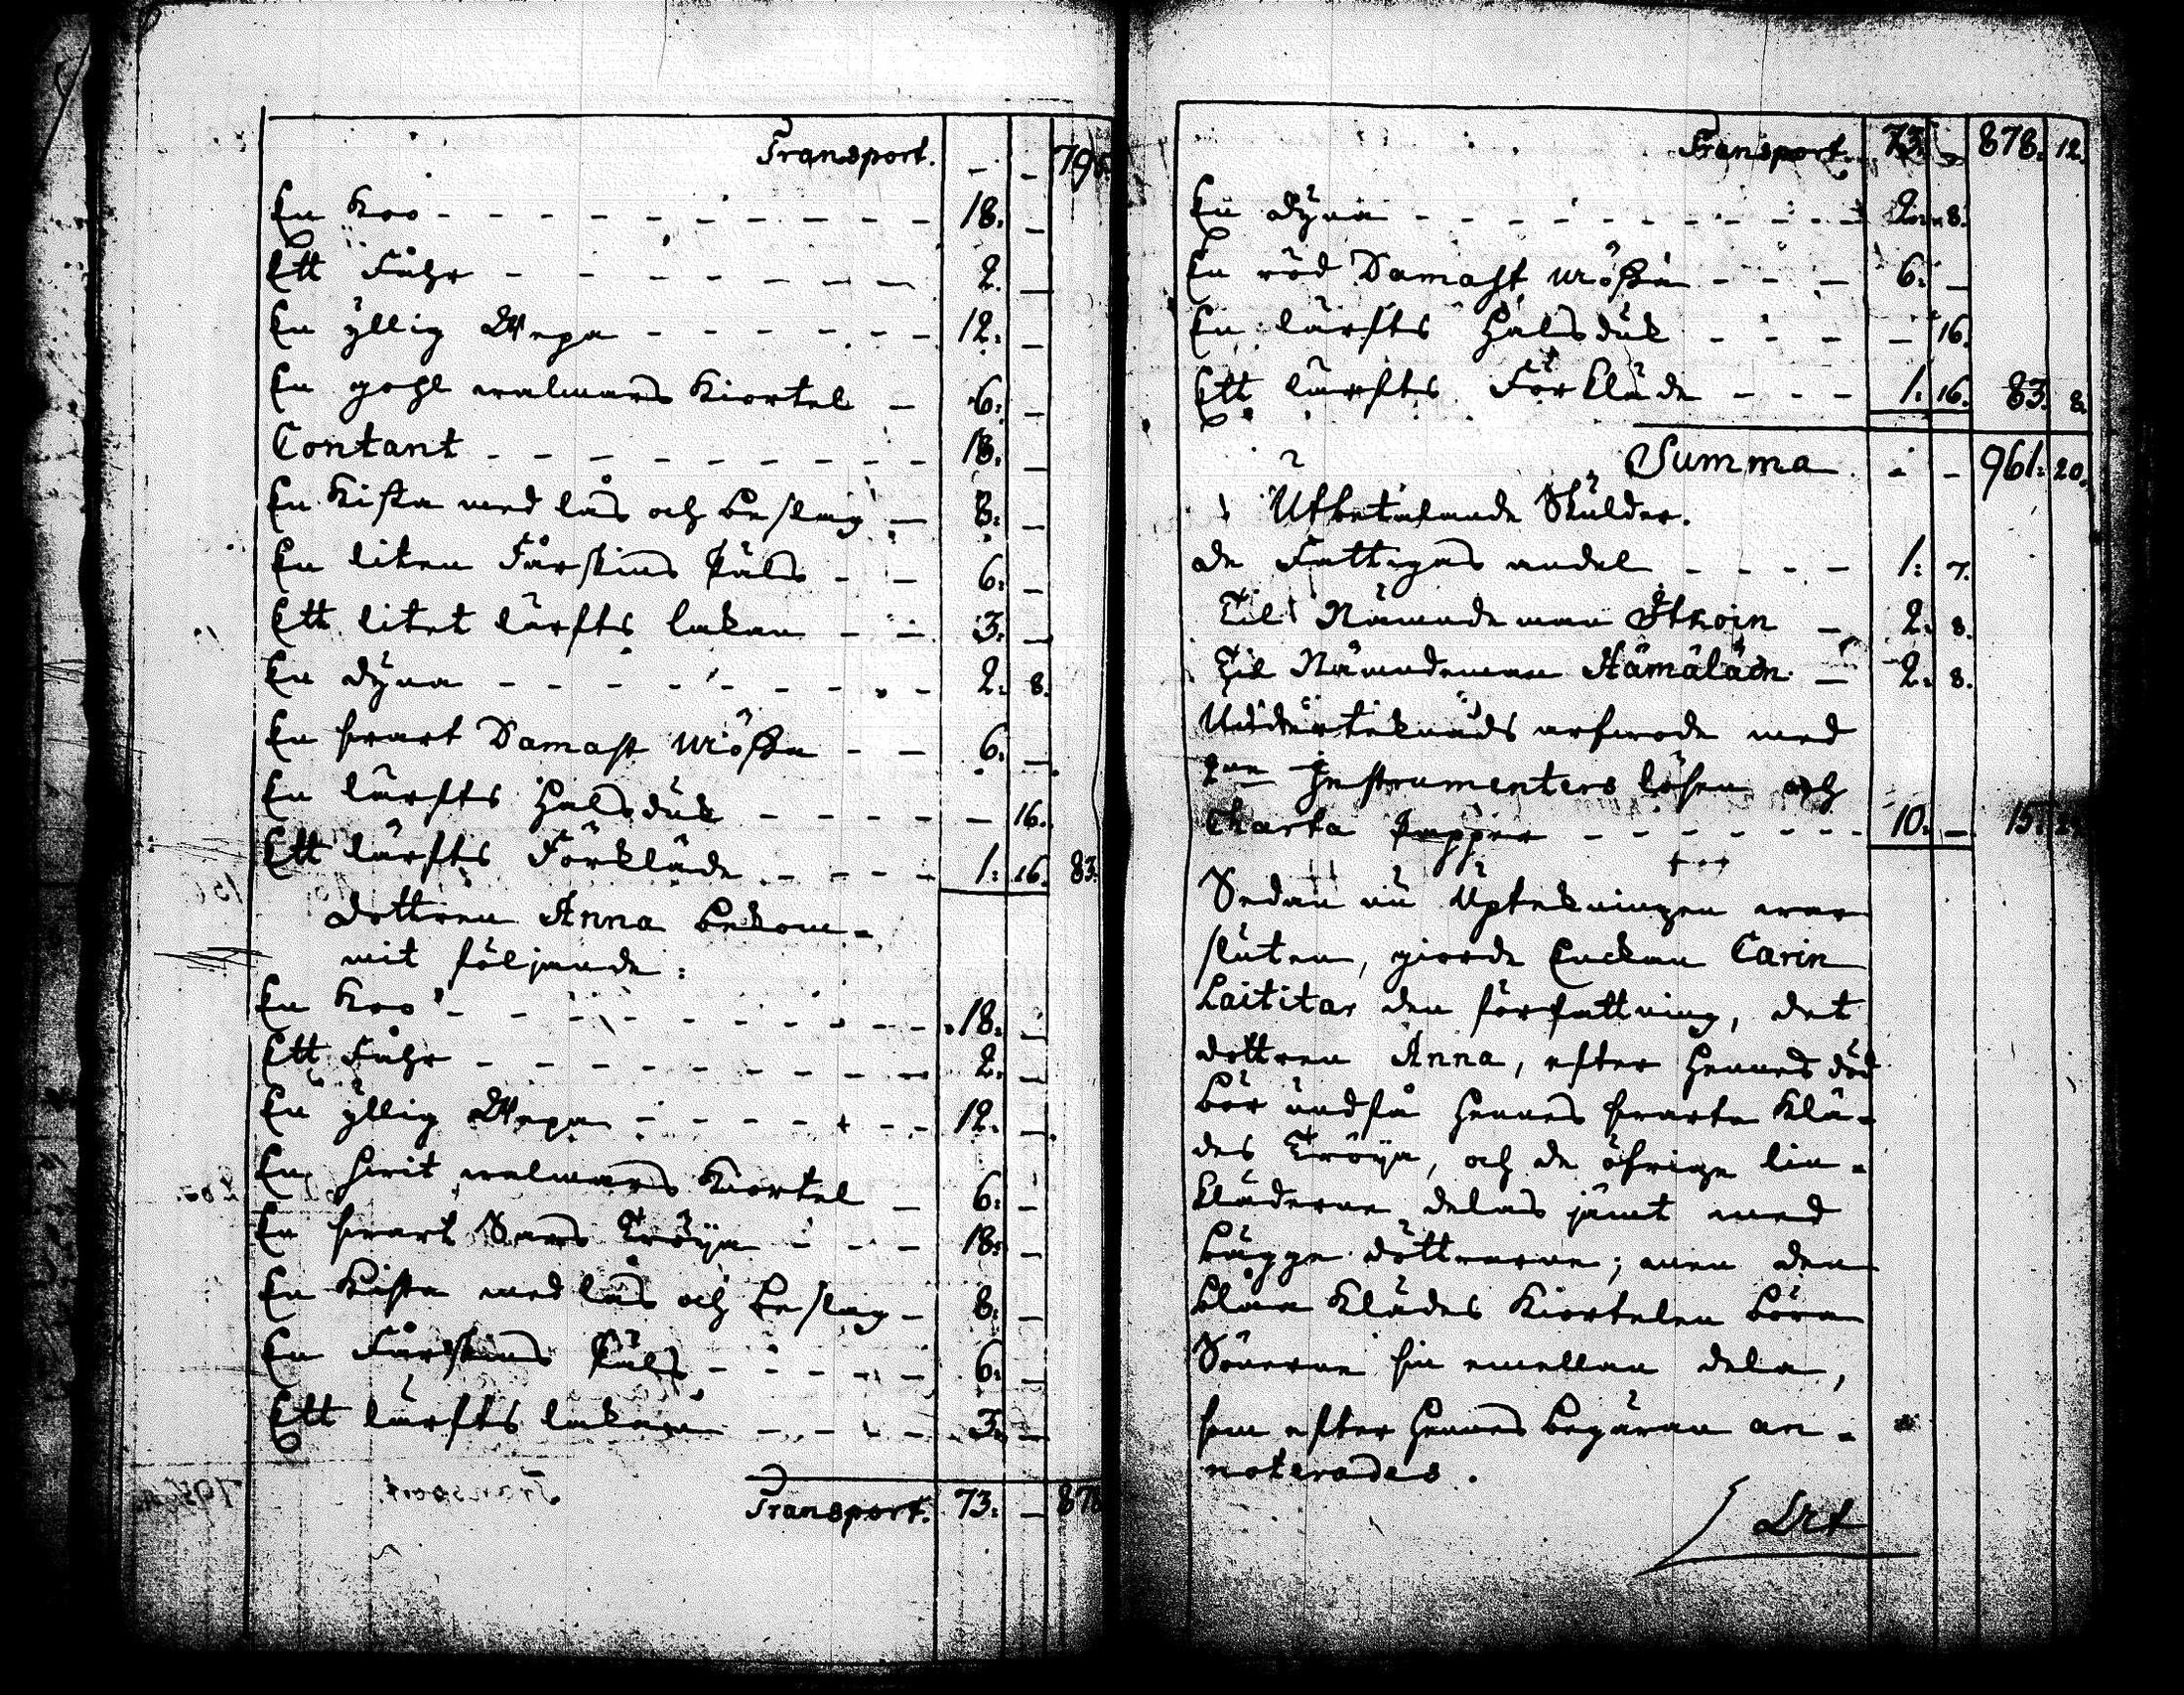 Transport. - - 795
En Koo - - - - - - - - - - 18: -
Ett Fåhr - - - - - - - 2. -
En yllig Wepa - - - - - - 12: -
En gohl walmars Kiortel - 6: -
Contant - - - - - - - - - 18: -
En Kista med lås och beslag - 8: -
En liten Fårskins Päls - - 6: -
Ett litet lärfts lakan - - 3: -
En dyna - - - - - - - - - 2: 8.
En swart Damast Mössa - - 6: -
En lärfts Halsduk - - - - - - 16.
Ett lärfts Förkläde - - - - 1: 16. 83.
dottren Anna bekom-
mit följande:
En Koo - - - - - - - - - - 18: -
Ett Fåhr - - - - - - - - - 2: -
En yllig Wepa - - - - - - - 12: -
En hwit walmars Kiortel - 6: -
En swart Sars Tröija - - - 18: -
En Kista med lås och beslag - 8: -
En Fårskins Päls - - - - - 6: -
Ett lärfts lakan - - - - - 3: -
Transport. 73: - 878
Transport. 73: - 878: 12.
En dyna - - - - - - - - - - 2: 8.
En röd Damast Mössa - - - 6: -
En lärfts Halsduk - - - - 16.
Ett lärfts Förkläde - - - 1: 16. 83: 8.
Summa - - 961: 20.
Utbetalande Skulder.
de Fattigas andel - - - - 1: 7.
Til Nämndeman Ithoin - 2: 8.
Til Nämndeman Hämäläin - 2: 8.
arfwode med
Instrumenters lösen och
Charta Papper - - - - - - - 10: - 15:
Sedan nu Uptekningen war
sluten, giorde Enckan Carin
Laititar den författning, det
dottren Anna, efter hennes död
bör undfå hennes swarta Klä-
des Tröija, och de öfrige lin-
kläderne delas jämt med
bägge döttrarne; men den
blåa Klädes Kiortelen böra
Sönerne sin emellan dela,
som efter hennes begäran an-
noterades.